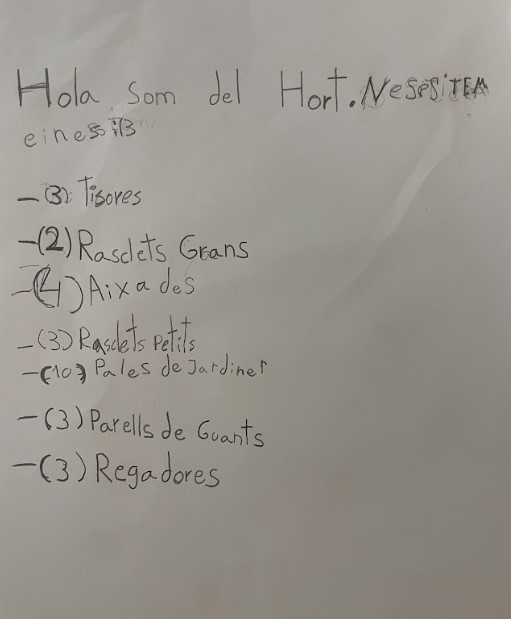 Hola som del Hort. Nesesitem
eines
-(3) Tisores
-(2) Rasclets Grans
-(4) Aixades
-(3) Rasclets Petits
-(10) Pales de Jardiner
-(3) Parells de Guants
-(3) Regadores